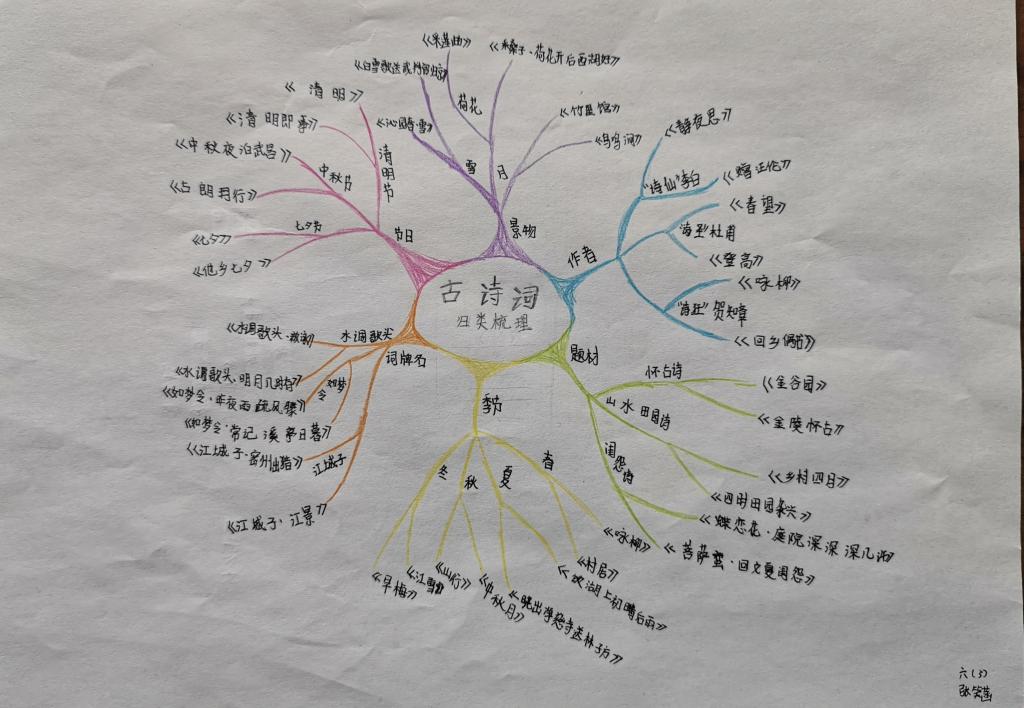 古诗词
归类梳理
节日
清明节
《清明》
《清明即事》
中秋节
《中秋夜泊武昌》
《古朗月行》
七夕节
《七夕》
《他乡七夕》
景物
雪
《沁园春·雪》
荷花
《采莲曲》
《采桑子·荷花开后西湖好》
月
《竹里馆》
《鸟鸣涧》
作者
"诗仙"李白
《静夜思》
《赠汪伦》
"诗圣"杜甫
《春望》
《登高》
"诗狂"贺知章
《咏柳》
《回乡偶书》
题材
怀古诗
《金谷园》
《金陵怀古》
山水田园诗
《乡村四月》
《四时田园杂兴》
闺怨诗
《蝶恋花·庭院深深深几许》
《菩萨蛮·回文夏闺怨》
季节
春
《咏柳》
《村居》
夏
《饮湖上初晴后雨》
《晓出净慈寺送林子方》
秋
《中秋月》
《山行》
冬
《江雪》
《早梅》
词牌名
水调歌头
《水调歌头·明月几时有》
如梦令
《如梦令·昨夜雨疏风骤》
《如梦令·常记溪亭日暮》
江城子
《江城子·密州出猎》
《江城子·江景》
六(3)